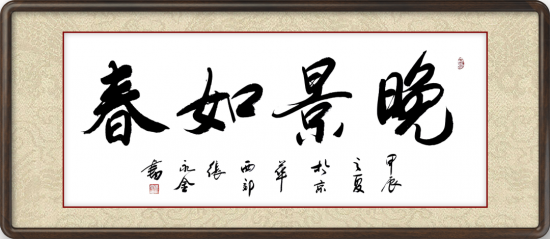 晚景如春
甲辰
立夏
於京
華
西郊
張
永金
書